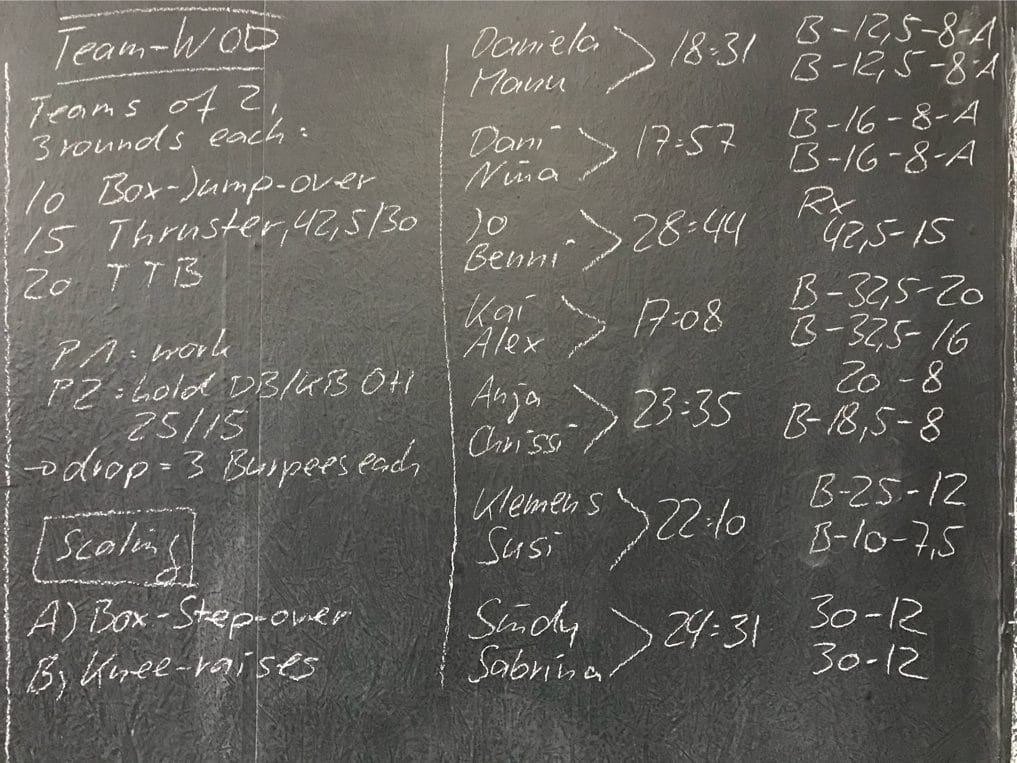 Team-WOD
Teams of 2,
3 rounds each:
10 Box-Jump-over
15 Thruster, 42,5/30
20 TTB
P1: work
P2: hold DB/KB OH
25/15
→ drop = 3 Burpees each
Scaling
A) Box-Step-over
B) Knee-raises
Daniela
Manu
18:31
B-12,5-8-A
B-12,5-8-A
Dani
Nina
17:57
B-16-8-A
B-16-8-A
Jo
Benni
28:44
Rx
42,5-15
Kai
Alex
17:08
B-32,5-20
B-32,5-16
Anja
Chrissi
23:35
20-8
B-18,5-8
Klemens
Susi
22:10
B-25-12
B-10-7,5
Sindy
Sabrina
24:31
30-12
30-12